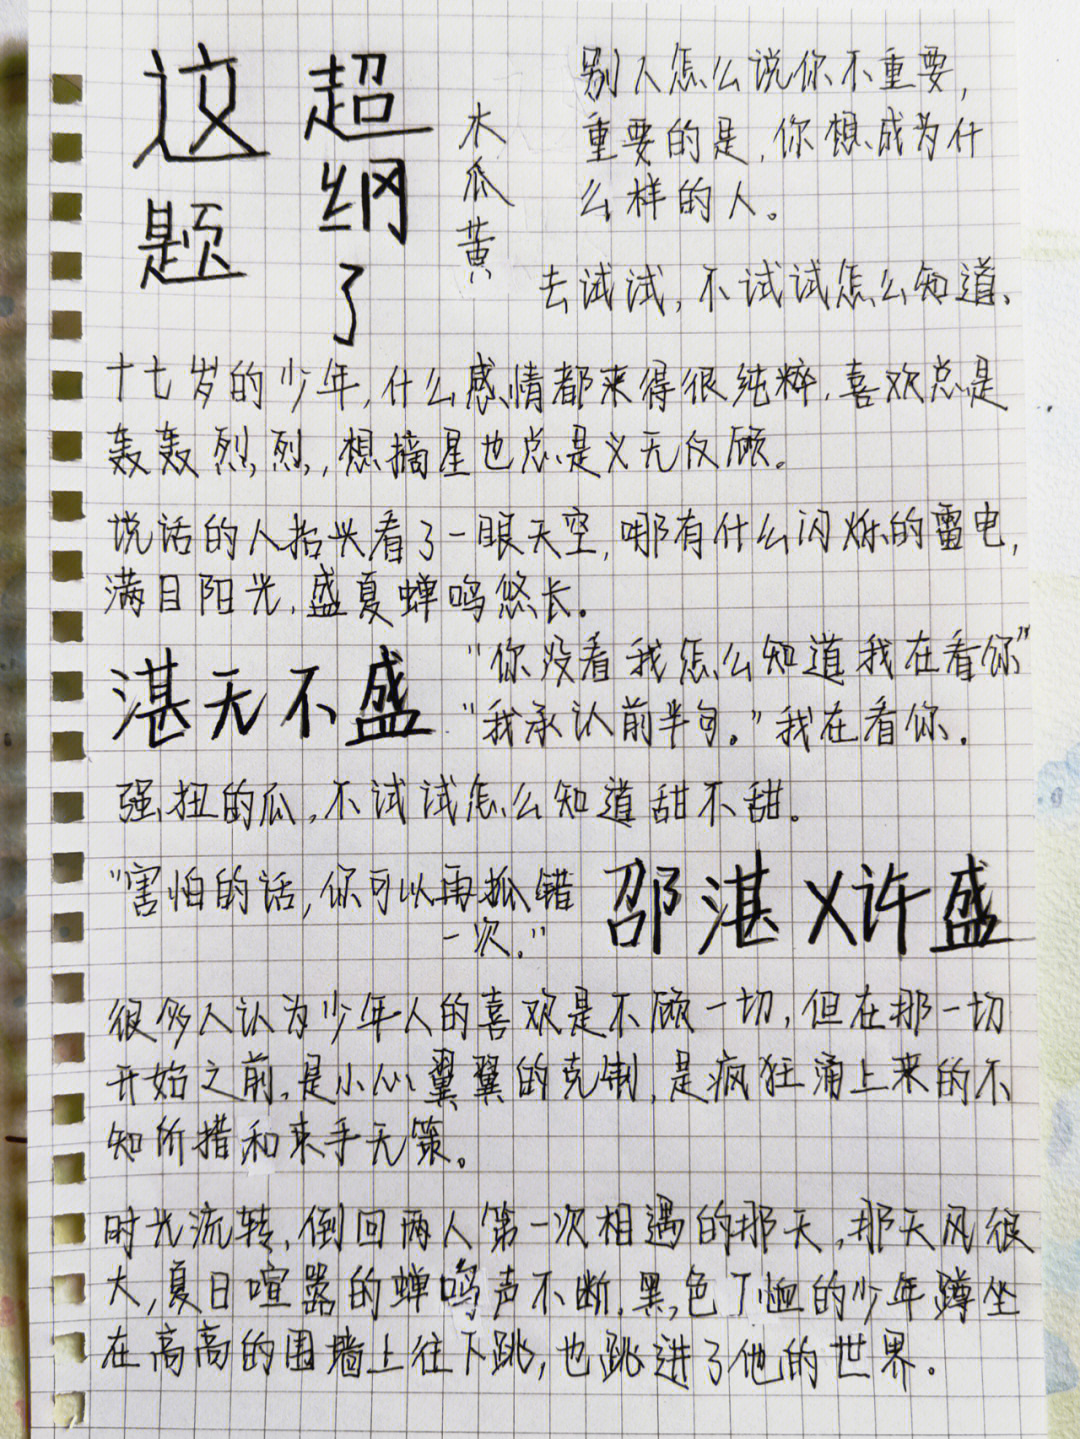 这题
超纲了
木瓜黄
别人怎么说你不重要,
重要的是,你想成为什
么样的人。
去试试,不试试怎么知道、
十七岁的少年,什么感情都来得很纯粹,喜欢总是
轰轰烈烈,想摘星也总是义无反顾。
说话的人抬头看了一眼天空,哪有什么闪烁的雷电,
满目阳光,盛夏蝉鸣悠长。
湛无不盛
“你没看我怎么知道我在看你”
“我承认前半句。”我在看你.
强扭的瓜,不试试怎么知道甜不甜。
“害怕的话,你可以再抓错
一次。”
邵湛X许盛
很多人认为少年人的喜欢是不顾一切,但在那一切
开始之前,是小心翼翼的克制,是疯狂涌上来的不
知所措和束手无策。
时光流转,倒回两人第一次相遇的那天,那天风很
大,夏日喧嚣的蝉鸣声不断,黑色T恤的少年蹲坐
在高高的围墙上往下跳,也跳进了他的世界。